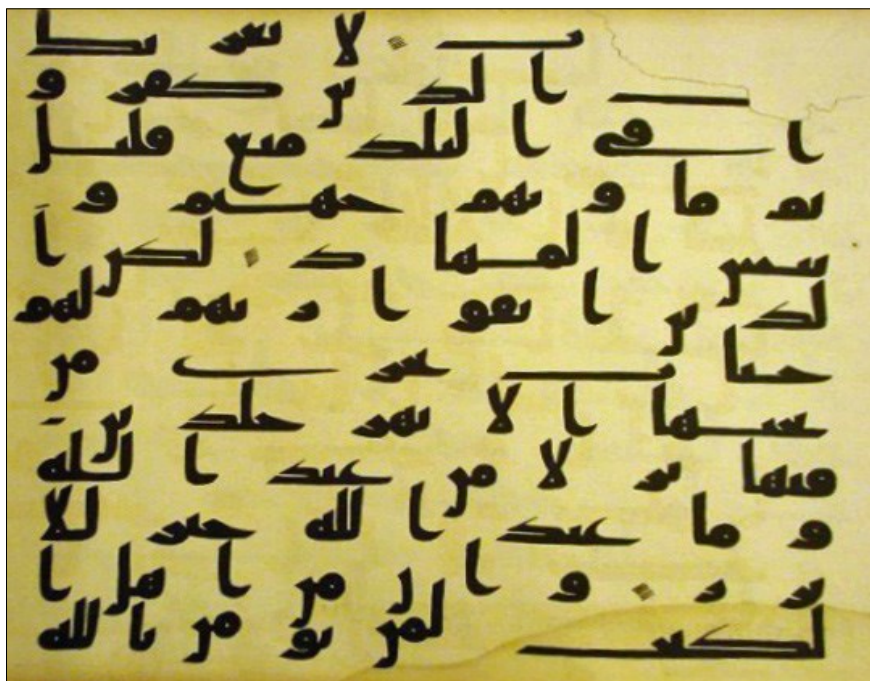 ب لا يغر نك
ب الذين كفرو
ا في البلد متع قليل
ثم مأويهم جهنم و
بئس المهاد لكن ا
لذين اتقوا ربهم لهم
جنات تجري من
تحتها الأنهر خلدين
فيها نزلا من عند الله
وما عند الله خير للأ
برر وإن من أهل ا
لكتب لمن يؤمن بالله